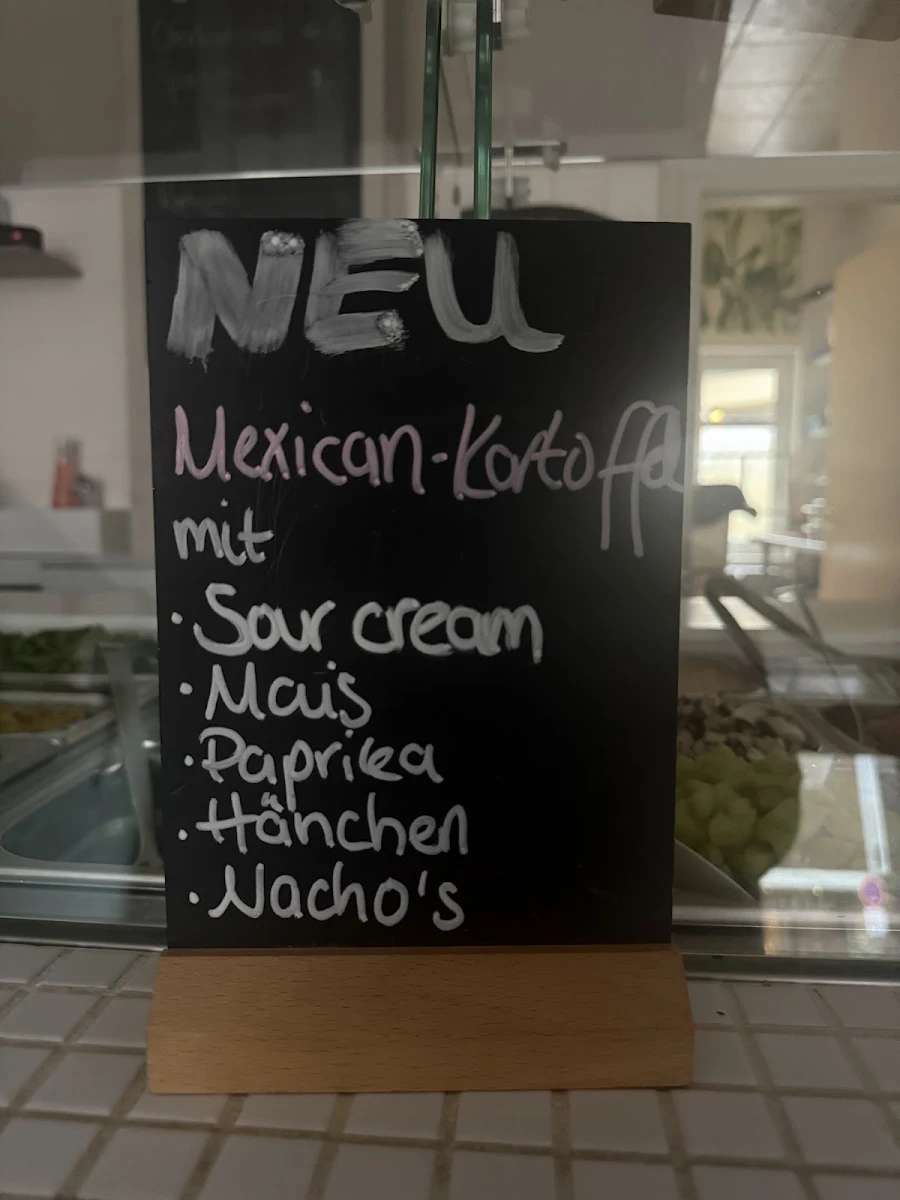 NEU
Mexican-Kartoffel
mit
· Sour cream
· Mais
· Paprika
· Hänchen
· Nacho's